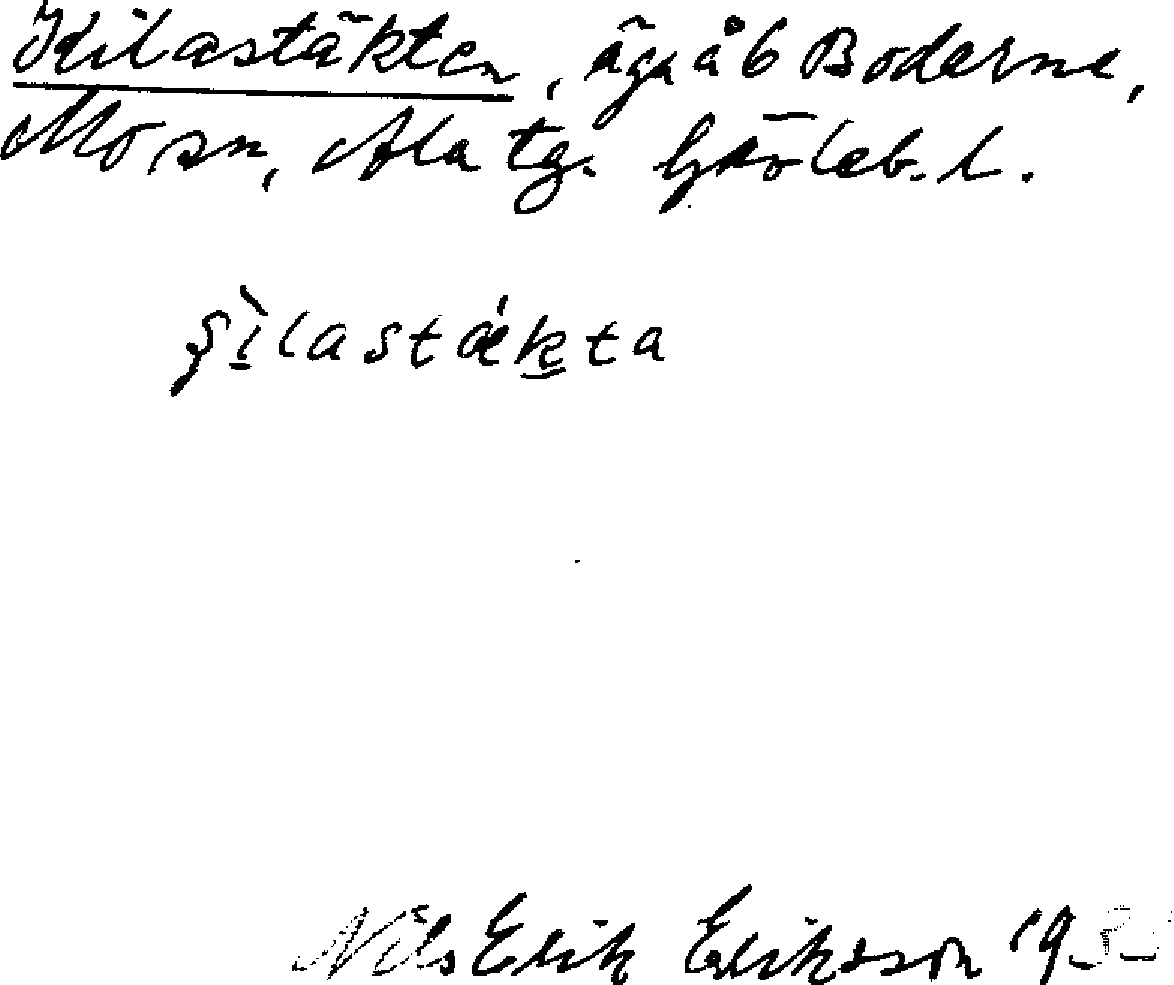 Kilastäkten, äga å 6 Boderne,
Mo sn, Ala tg. Gävleb. l.
ʂìlastǽkta
Nils Erik Eriksson